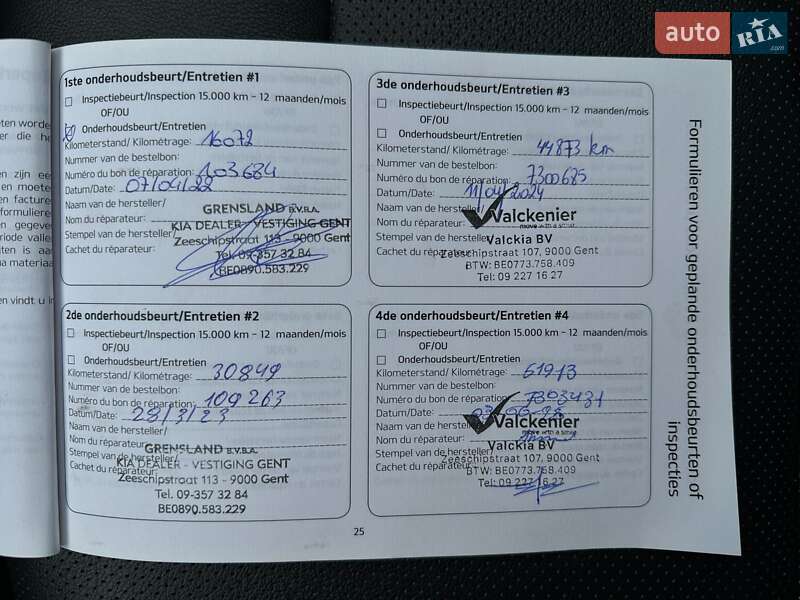 auto RIA .com
Formulieren voor geplande onderhoudsbeurten of
inspecties
1ste onderhoudsbeurt/Entretien #1
Inspectiebeurt/Inspection 15.000 km – 12 maanden/mois
OF/OU
Onderhoudsbeurt/Entretien
Kilometerstand/ Kilométrage: 16072
Nummer van de bestelbon:
Numéro du bon de réparation: 103684
Datum/Date: 07/04/22
Naam van de hersteller/
Nom du réparateur:
Stempel van de hersteller/
Cachet du réparateur:
GRENSLAND B.V.B.A.
KIA DEALER - VESTIGING GENT
Zeeschipstraat 113 - 9000 Gent
Tel. 09-357 32 84
BE0890.583.229
2de onderhoudsbeurt/Entretien #2
Inspectiebeurt/Inspection 15.000 km – 12 maanden/mois
OF/OU
Onderhoudsbeurt/Entretien
Kilometerstand/ Kilométrage: 30849
Nummer van de bestelbon:
Numéro du bon de réparation: 109263
Datum/Date: 28/3/23
Naam van de hersteller/
Nom du réparateur:
Stempel van de hersteller/
Cachet du réparateur:
GRENSLAND B.V.B.A.
KIA DEALER - VESTIGING GENT
Zeeschipstraat 113 - 9000 Gent
Tel. 09-357 32 84
BE0890.583.229
3de onderhoudsbeurt/Entretien #3
Inspectiebeurt/Inspection 15.000 km – 12 maanden/mois
OF/OU
Onderhoudsbeurt/Entretien
Kilometerstand/ Kilométrage: 44873 km
Nummer van de bestelbon:
Numéro du bon de réparation: 7300685
Datum/Date: 11/04/2024
Naam van de hersteller/
Nom du réparateur:
Stempel van de hersteller/
Cachet du réparateur:
Valckenier
move with a smile
Valckia BV
Zeeschipstraat 107, 9000 Gent
BTW: BE0773.758.409
Tel: 09 227 16 27
4de onderhoudsbeurt/Entretien #4
Inspectiebeurt/Inspection 15.000 km – 12 maanden/mois
OF/OU
Onderhoudsbeurt/Entretien
Kilometerstand/ Kilométrage:
Nummer van de bestelbon:
Numéro du bon de réparation: 7303431
Datum/Date:
Naam van de hersteller/
Nom du réparateur:
Stempel van de hersteller/
Cachet du réparateur:
Valckenier
move with a smile
Valckia BV
Zeeschipstraat 107, 9000 Gent
BTW: BE0773.758.409
Tel: 09 227 16 27
25